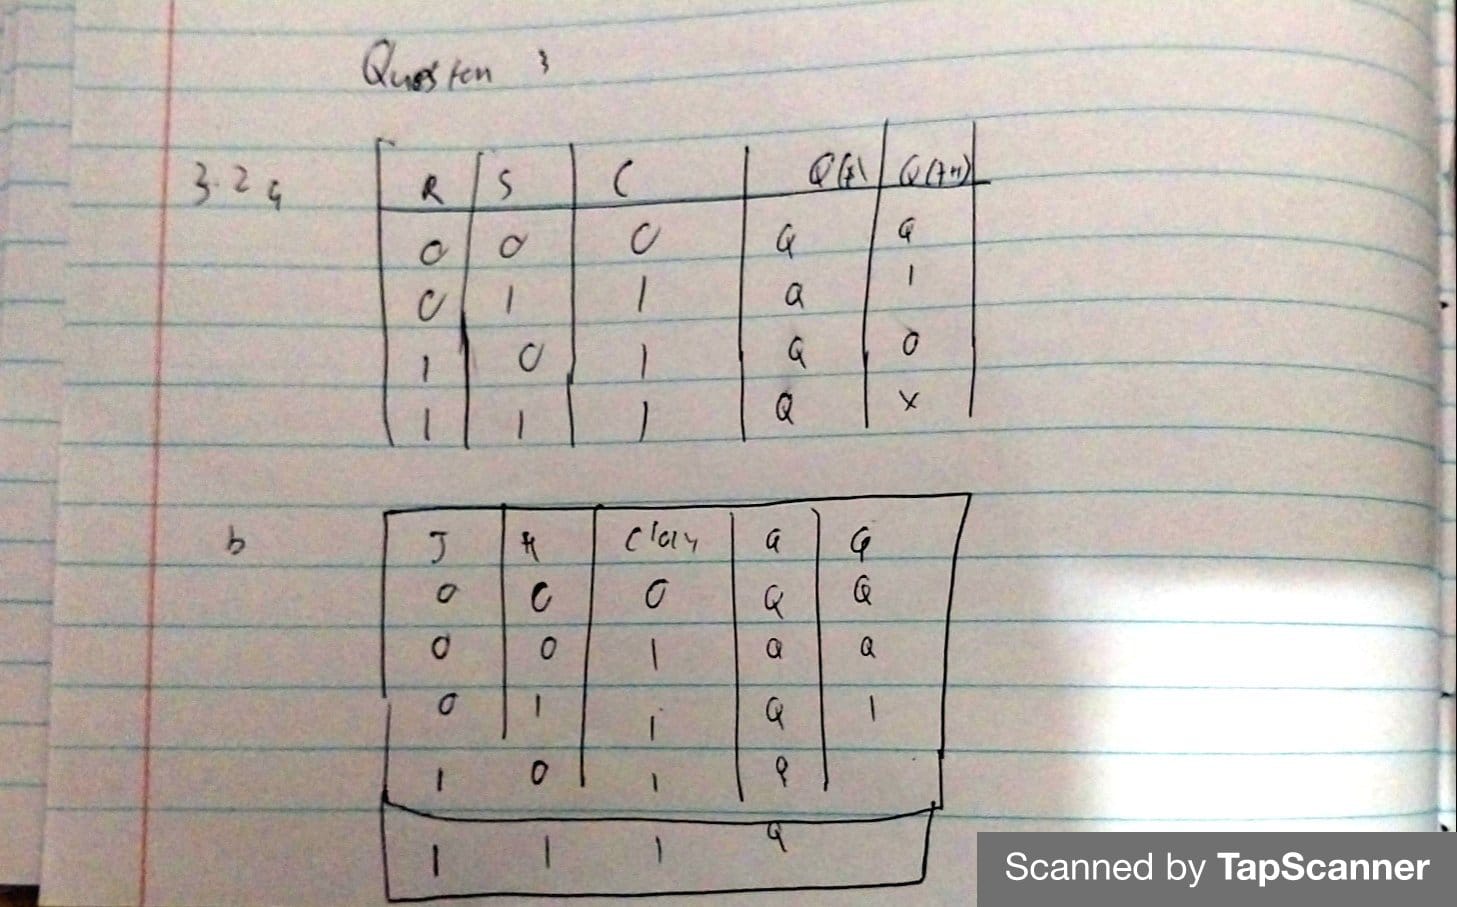 Question 3
3.2 a
R S C Q(t) Q(t+1)
0 0 0 Q Q
0 1 1 Q 1
1 0 1 Q 0
1 1 1 Q X
b
J K Q Q
0 0 0 Q Q
0 0 1 Q Q
0 1 1 Q 1
1 0 1 Q
1 1 1 Q
Scanned by TapScanner